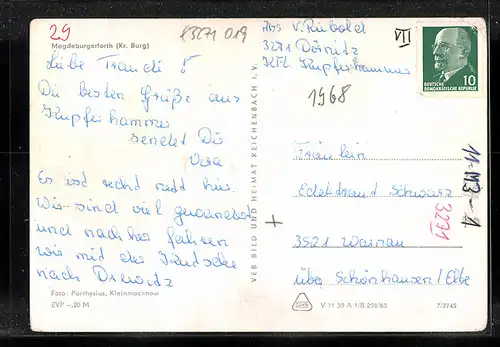 29
X3271 019
Magdeburgerforth (Kr. Burg)
Liebe Traudi!
Die besten Grüße aus
Kupferhammer
sendet Dir
Vera
Es ist recht nett hier.
Wir sind viel gewandert
und nachher fahren
wir mit der Kutsche
nach Drewitz
Foto: Parrhysius, Kleinmachnow
EVP –,20 M
VEB BILD UND HEIMAT REICHENBACH I. V.
Abs V. Riebold
3271 Dörnitz
Kupferhammer
VII
DEUTSCHE
DEMOKRATISCHE REPUBLIK
10
1968
Fräulein
Edeltraud Schwarz
3521 Warnau
über Schönhausen/Elbe
3271
11-M3-1
+
V 11 50 A 1/B 298/68
7/2745